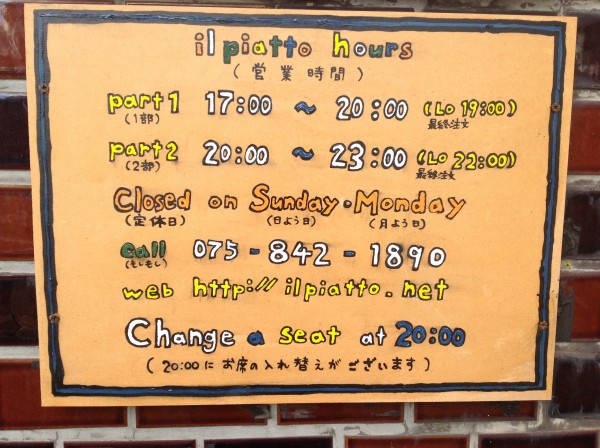 il piatto hours
(営業時間)
part1 17:00 ~ 20:00 (LO 19:00)
(1部) 最終注文
part2 20:00 ~ 23:00 (LO 22:00)
(2部) 最終注文
Closed on Sunday・Monday
(定休日) (日よう日) (月よう日)
Call 075-842-1890
(もしもし)
web http://ilpiatto.net
Change a seat at 20:00
(20:00に お席の入れ替えがございます)